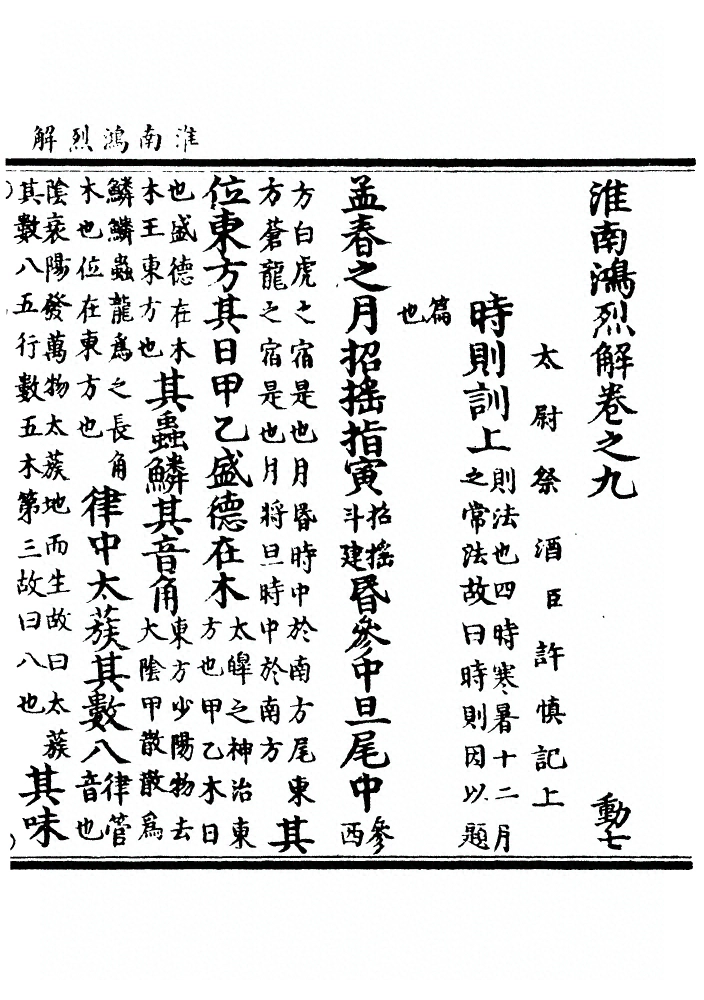 淮南鴻烈解
淮南鴻烈解卷之九 動七
太尉祭酒臣許慎記上
時則訓上則法也四時寒暑十二月之常法故曰時則因以題
篇也
孟春之月招搖指寅招搖斗建昬參中旦尾中參西
方白虎之宿是也月昬時中於南方尾東方蒼龍之宿是也月將旦時中於南方其
位東方其日甲乙盛德在木太皞之神治東方也甲乙木日
也盛德在木木王東方也其蟲鱗其音角東方少陽物去大陰甲散散爲
鱗鱗蟲龍爲之長角木也位在東方也律中太蔟其數八律管音也
陰衰陽發萬物太蔟地而生故曰太蔟其數八五行數五木第三故曰八也其味